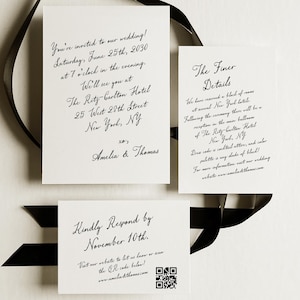 You're invited to our wedding!
Saturday, June 25th, 2030
at 7 o'clock in the evening.
We'll see you at
The Ritz-Carlton Hotel
25 West 20th Street
New York, NY
xo,
Amelia & Thomas
The Finer
Details
We have reserved a block of rooms
around New York hotels.
Following the ceremony there will be a
reception in the main ballroom
of The Ritz-Carlton Hotel.
Dress code is cocktail attire, and color
palette is any shade of black!
For more information visit our wedding
website www.ameliathomas.com
Kindly Respond by
November 10th.
Visit our website to let us know or scan
the QR code below!
www.ameliathomas.com